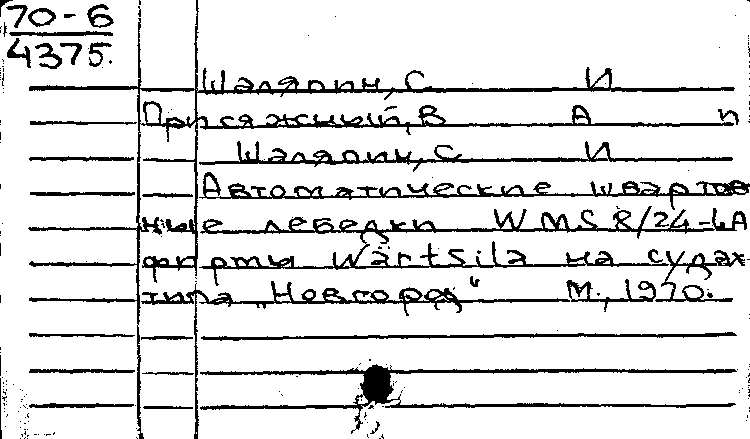 70-6
4375.
Шаляпин, С И
Присяжный, В А п
Шаляпин, С И
Автоматические швартов
ные лебедки WMSR/24-LA
фирмы Wärtsilä на судах
типа „Новгород“ М., 1970.